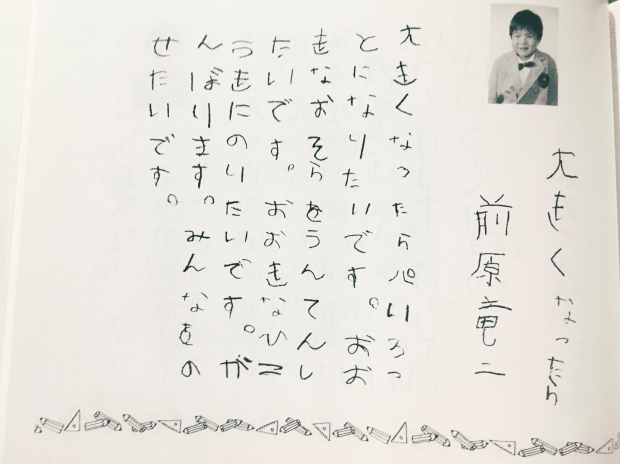 大きくなったら
前原竜二
大きくなったらパいろっ
とになりたいです。おお
きなおそらをうんてんし
たいです。おおきなひこ
うきにのりたいです。が
んばります。みんなをの
せたいです。